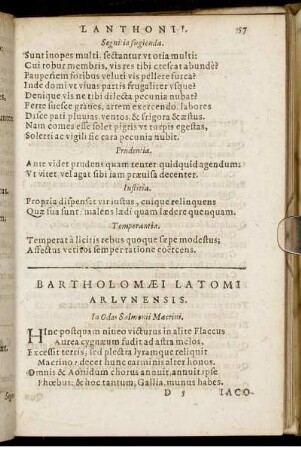 LANTHONII. 57
Segnitia fugienda.
Sunt inopes multi, sectantur vt otia multi:
Cui robur membris, vis res tibi crescat abundè?
Pauperiem foribus veluti vis pellere furca?
Inde domi vt viuas partis frugaliter vsque?
Denique vis ne tibi dilecta pecunia nubat?
Ferre suesce graues, artem exercendo, labores
Disce pati pluuias, ventos, & frigora & æstus.
Nam comes esse solet pigris vt turpis egestas,
Solerti ac vigili sic cara pecunia nubit.
Prudentia.
Ante videt prudens quam tentet quidquid agendum:
Vt vitet, vel agat sibi iam præuisa decenter.
Iustitia.
Propria dispensat vir iustus, cuique relinquens
Quæ sua sunt: malens lædi quam lædere quenquam.
Temperantia.
Temperat à licitis rebus quoque sæpe modestus;
Affectus vetitos semper ratione coërcens.
BARTHOLOMÆI LATOMI
ARLVNENSIS.
In Odas Salmonii Macrini.
HInc postquam niueo victurus in alite Flaccus
Aurea cygnæum fudit ad astra melos,
Excessit terris; sed plectra lyramque reliquit
Macrino; decet hunc carminis alter honos.
Omnis & Aonidum chorus annuit, annuit ipse
Phœbus; & hoc tantum, Gallia, munus habes.
D 5 IACO-